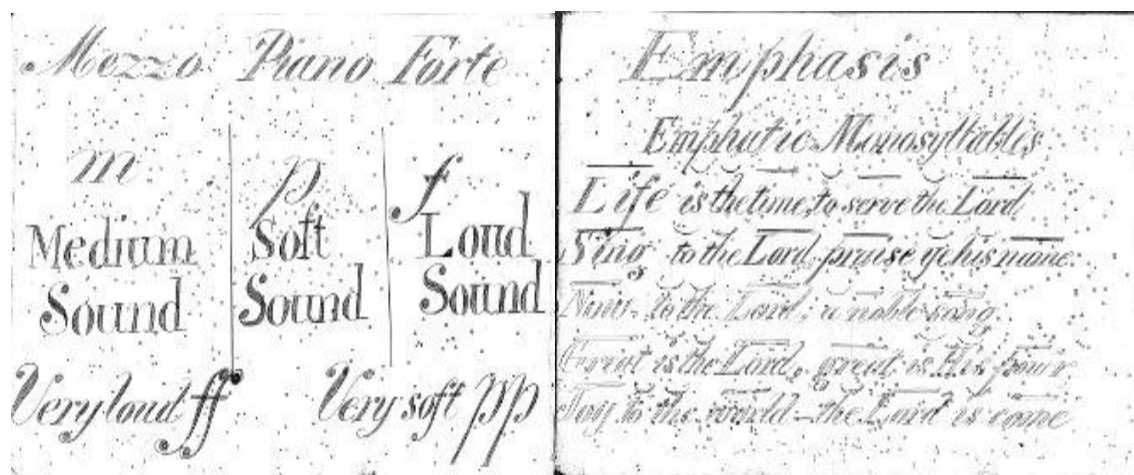 Mezzo Piano Forte
m p f
Medium Soft Loud
Sound Sound Sound
Very loud ff Very soft pp
Emphasis
Emphatic Monosyllables
Life is the time, to serve the Lord
Sing to the Lord, praise ye his name.
Now to the Lord, a noble song.
Great is the Lord, great is his pow'r
Joy to the world - the Lord is come